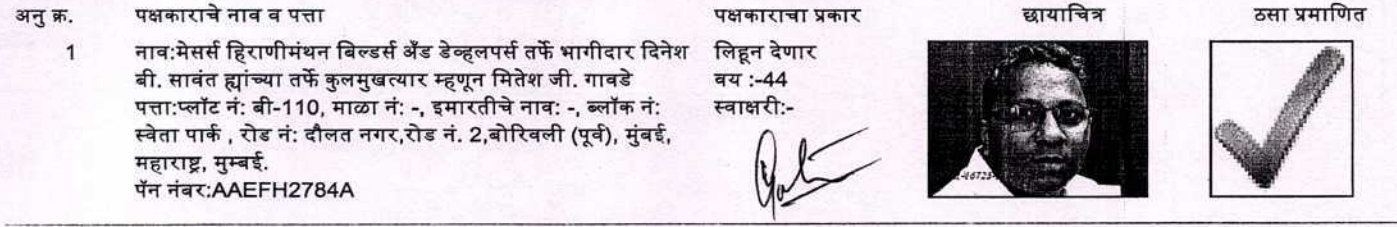 अनु क्र. पक्षकाराचे नाव व पत्ता पक्षकाराचा प्रकार छायाचित्र ठसा प्रमाणित
1 नाव:मेसर्स हिराणीमंथन बिल्डर्स अँड डेव्हलपर्स तर्फे भागीदार दिनेश लिहून देणार
बी. सावंत ह्यांच्या तर्फे कुलमुखत्यार म्हणून मितेश जी. गावडे वय :-44
पत्ता:प्लॉट नं: बी-110, माळा नं: -, इमारतीचे नाव: -, ब्लॉक नं: स्वाक्षरी:-
स्वेता पार्क , रोड नं: दौलत नगर,रोड नं. 2,बोरिवली (पूर्व), मुंबई,
महाराष्ट्र, मुम्बई.
पॅन नंबर:AAEFH2784A